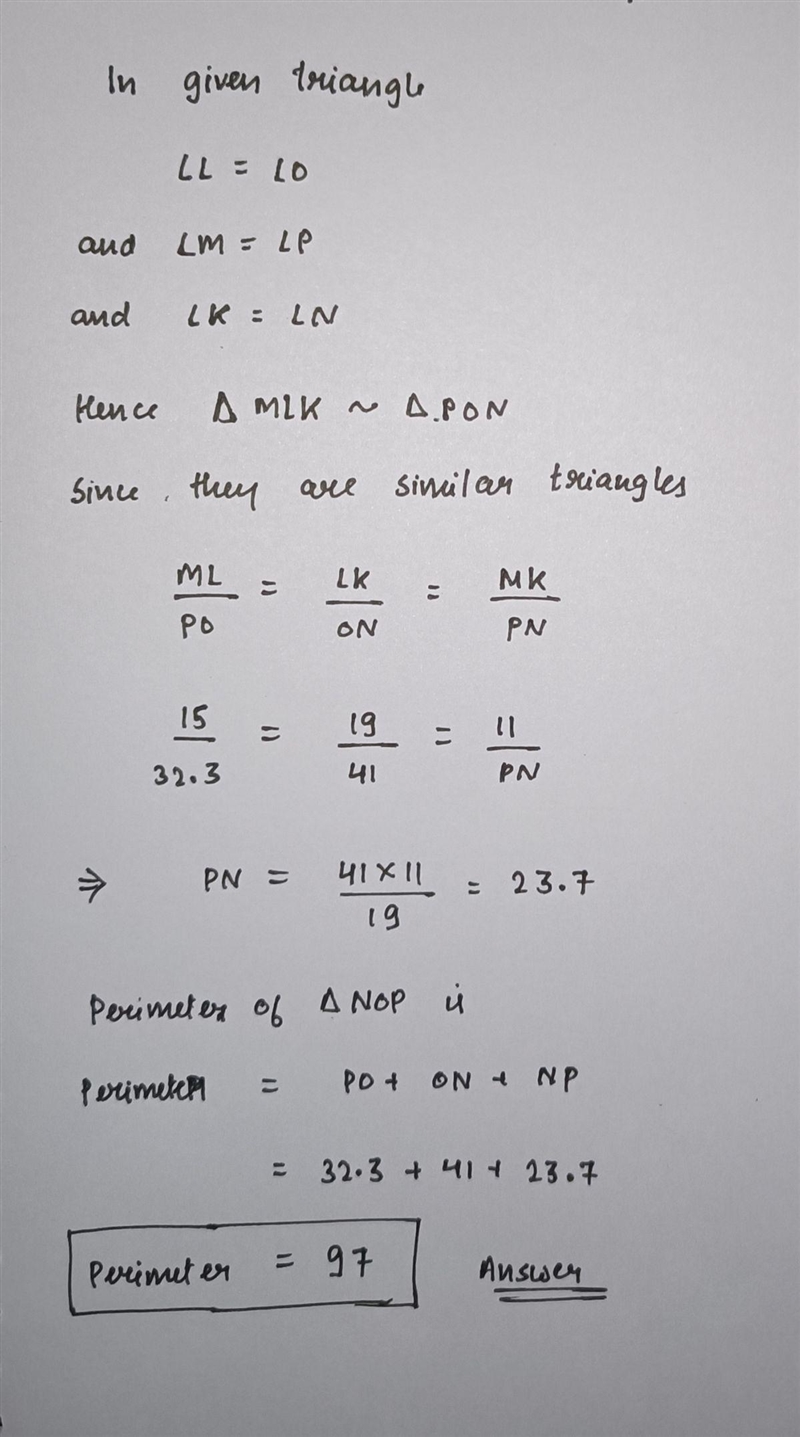 In given triangle
∠L = ∠O
and ∠M = ∠P
and ∠K = ∠N
Hence Δ MLK ~ Δ.PON
Since, they are similar triangles
ML/PO = LK/ON = MK/PN
15/32.3 = 19/41 = 11/PN
⇒ PN = 41×11/19 = 23.7
Perimeter of Δ NOP is
Perimeter = PO + ON + NP
= 32.3 + 41 + 23.7
Perimeter = 97 Answer